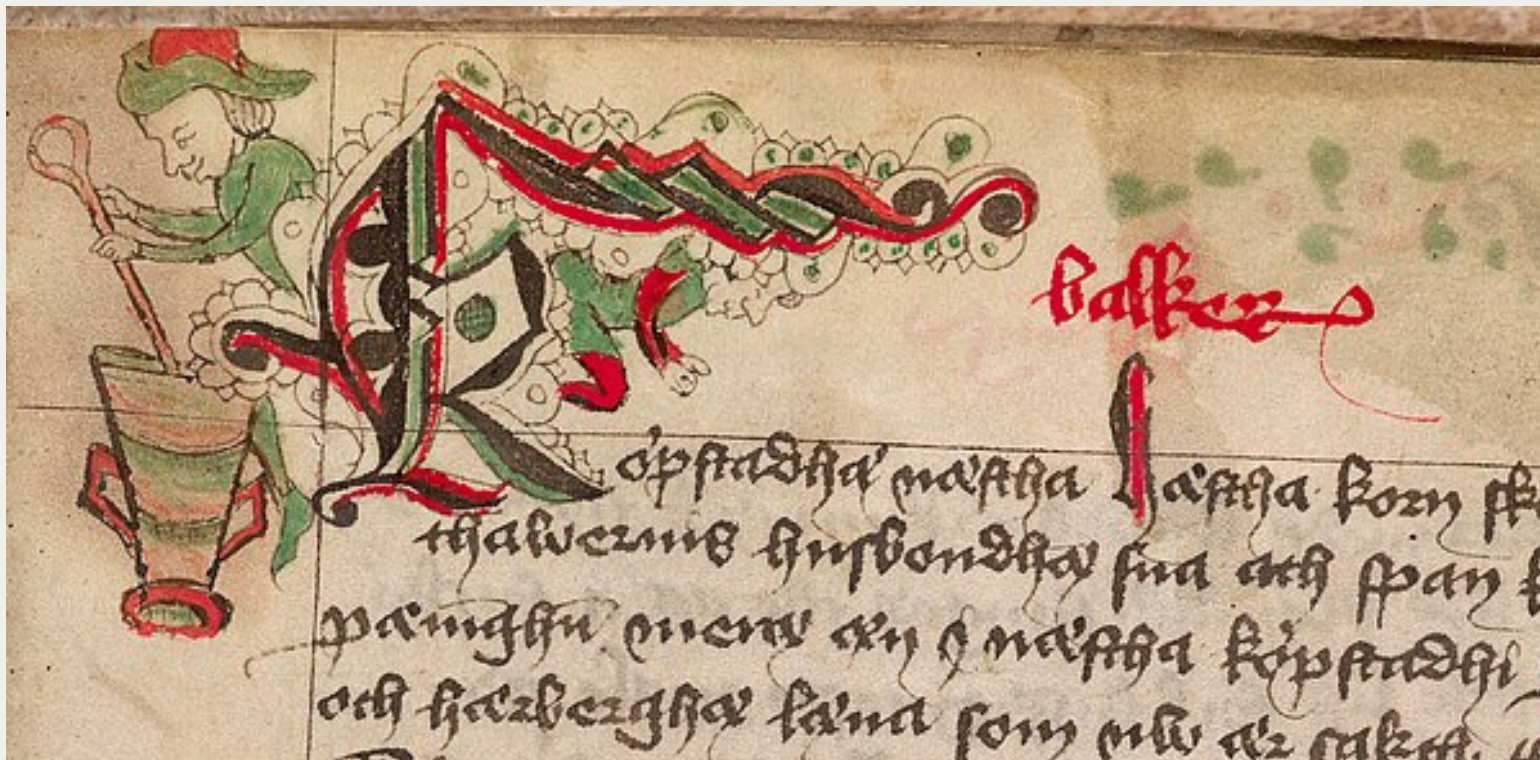 balker
Köpstadha næstha hæstha korn sk
thalwernis husbondha sua och span
pæninghn mera æn i næstha köpstadhi
och hærbergha læna som nw ær sakth